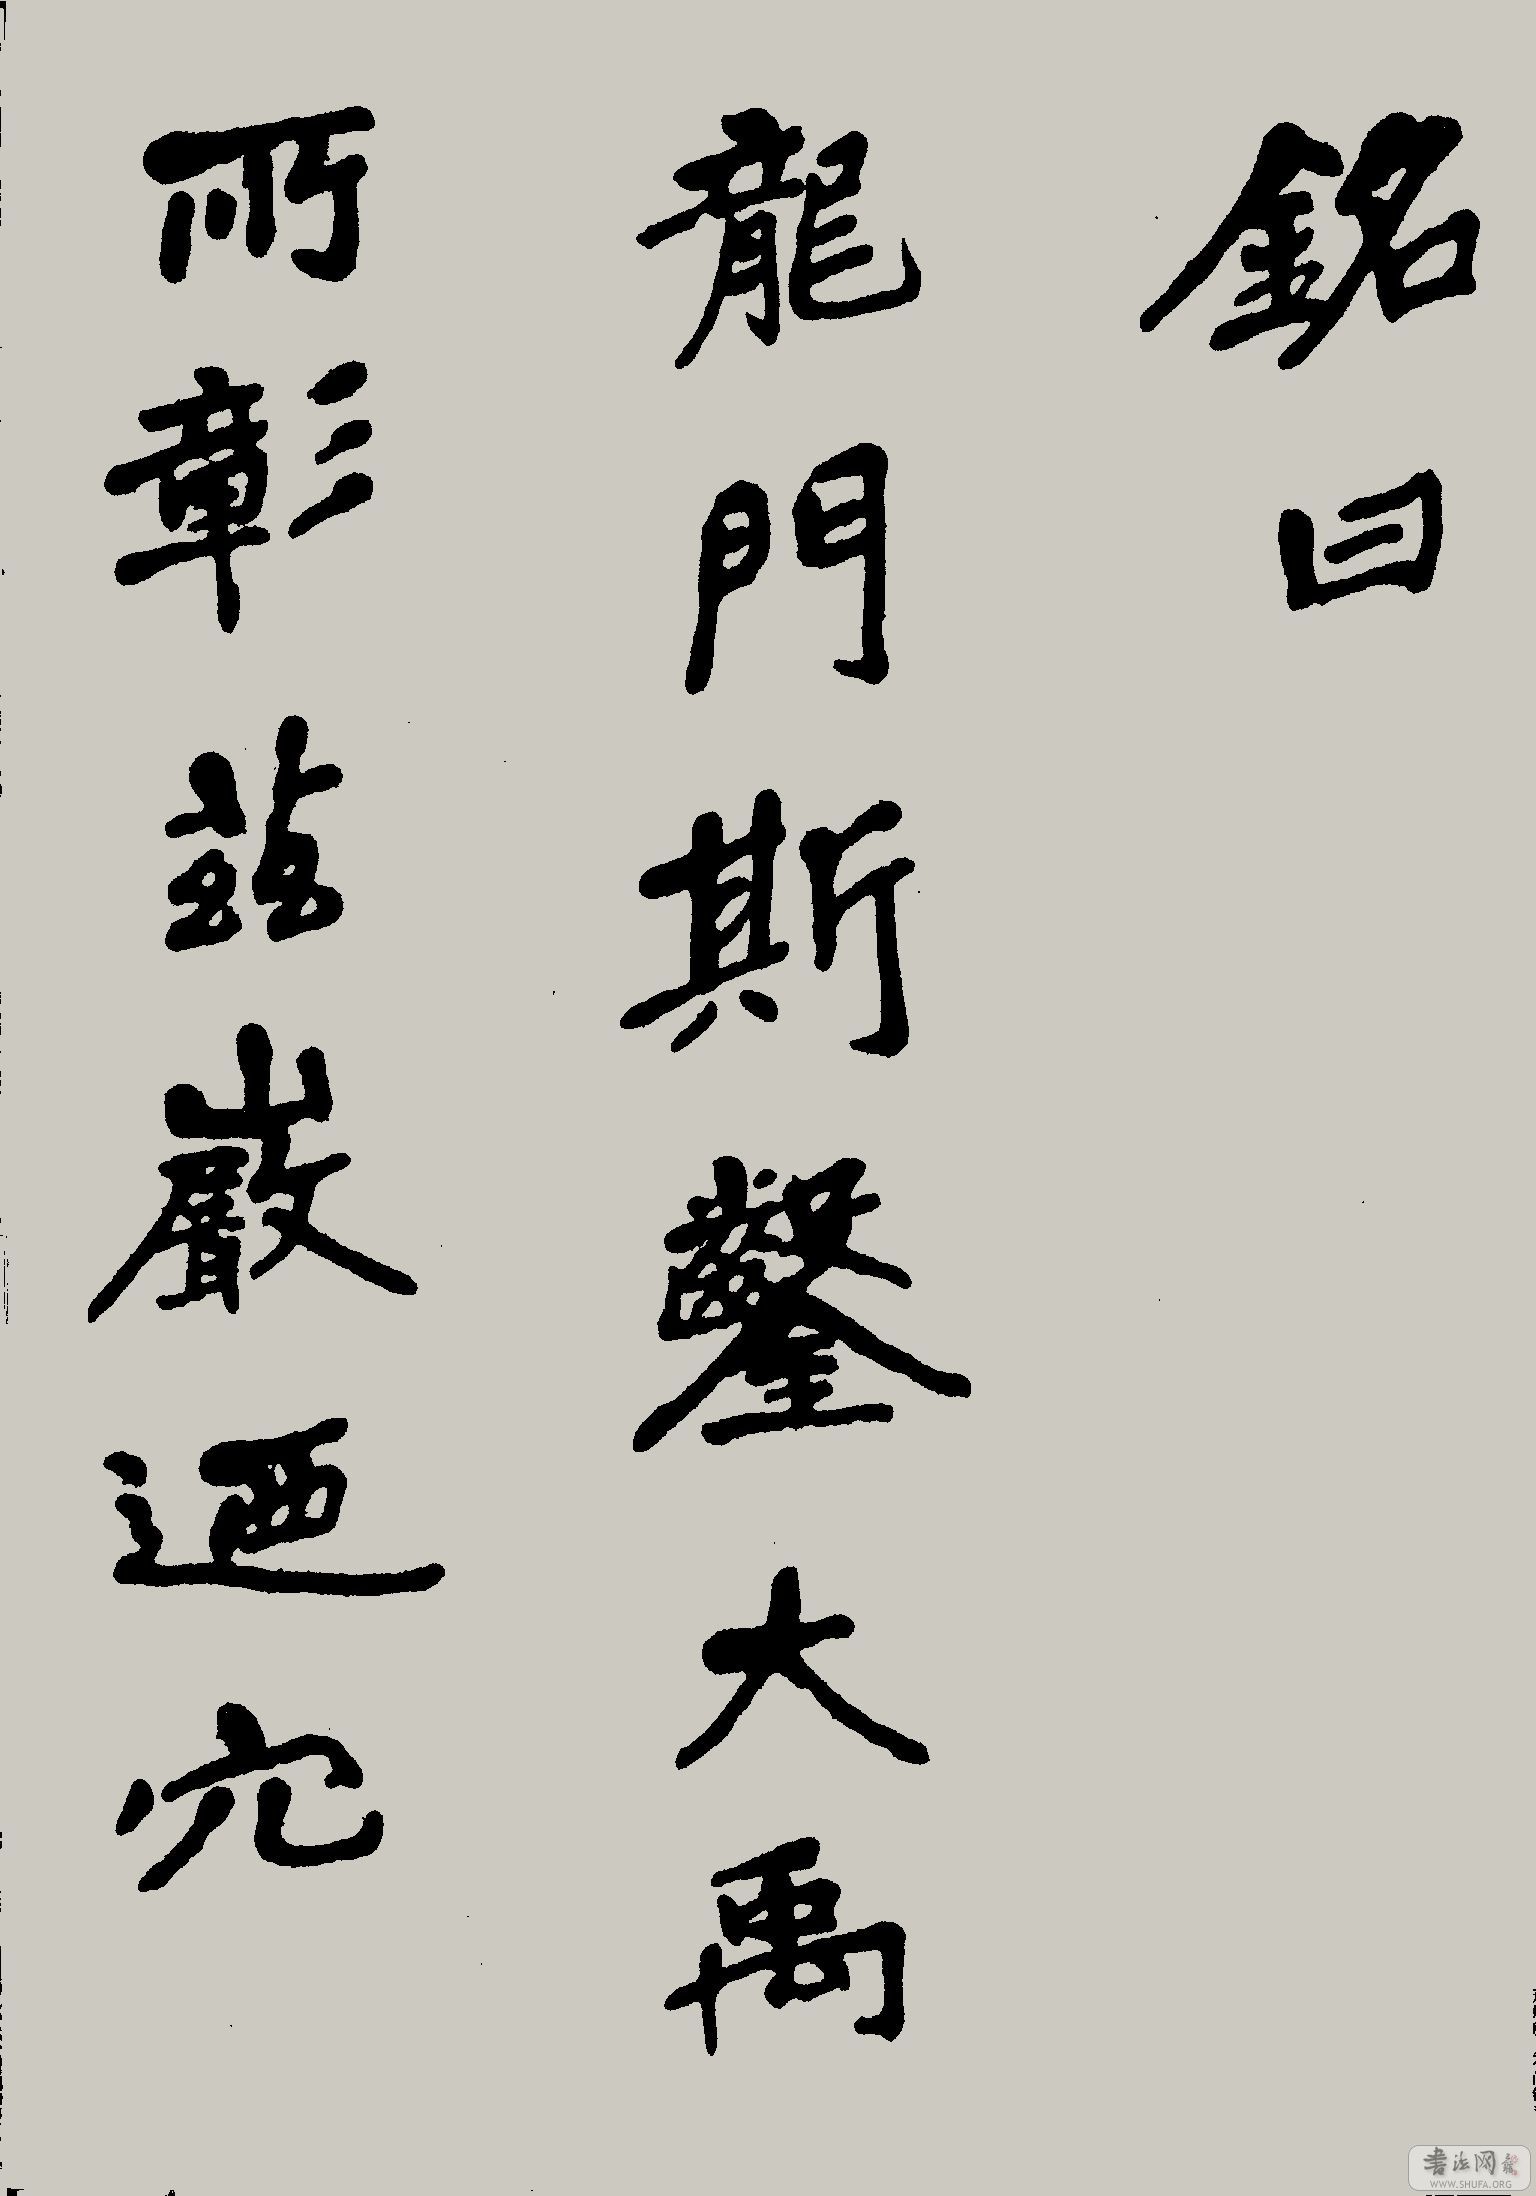 銘曰
龍門斯鑿大禹
所彰茲巖迺穴
書法网
WWW.SHUFA.ORG